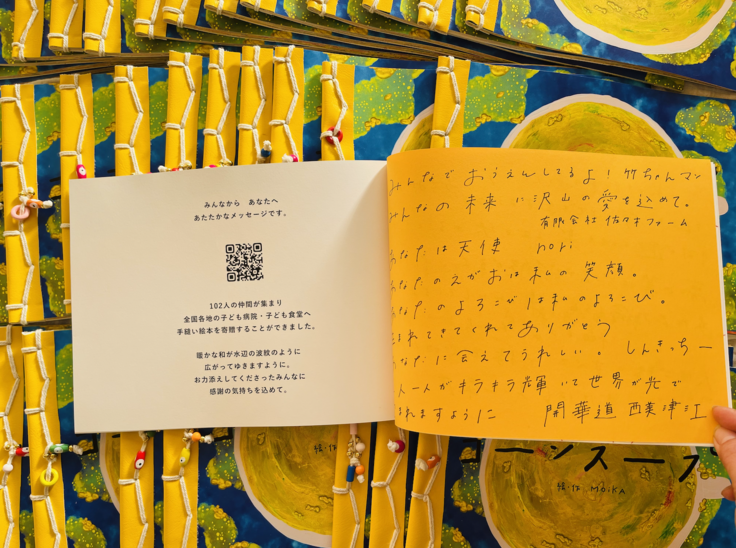 みんなから あなたへ
あたたかなメッセージです。
102人の仲間が集まり
全国各地の子ども病院・子ども食堂へ
手縫い絵本を寄贈することができました。
暖かな和が水辺の波紋のように
広がってゆきますように。
お力添えしてくださったみんなに
感謝の気持ちを込めて。
みんなでおうえんしてるよ！竹ちゃんマン
みんなの未来に沢山の愛を込めて。
有限会社 佐々木ファーム
あなたは天使 nori
あなたのえがおは私の笑顔。
あなたのよろこびは私のよろこび。
うまれてきてくれてありがとう
あなたに会えてうれしい。しんきっちー
一人一人がキラキラ輝いて世界が光で
まれますように 開華道 西美津江
ーンスープ
絵・作 MOiKA
絵・作 MOiKA